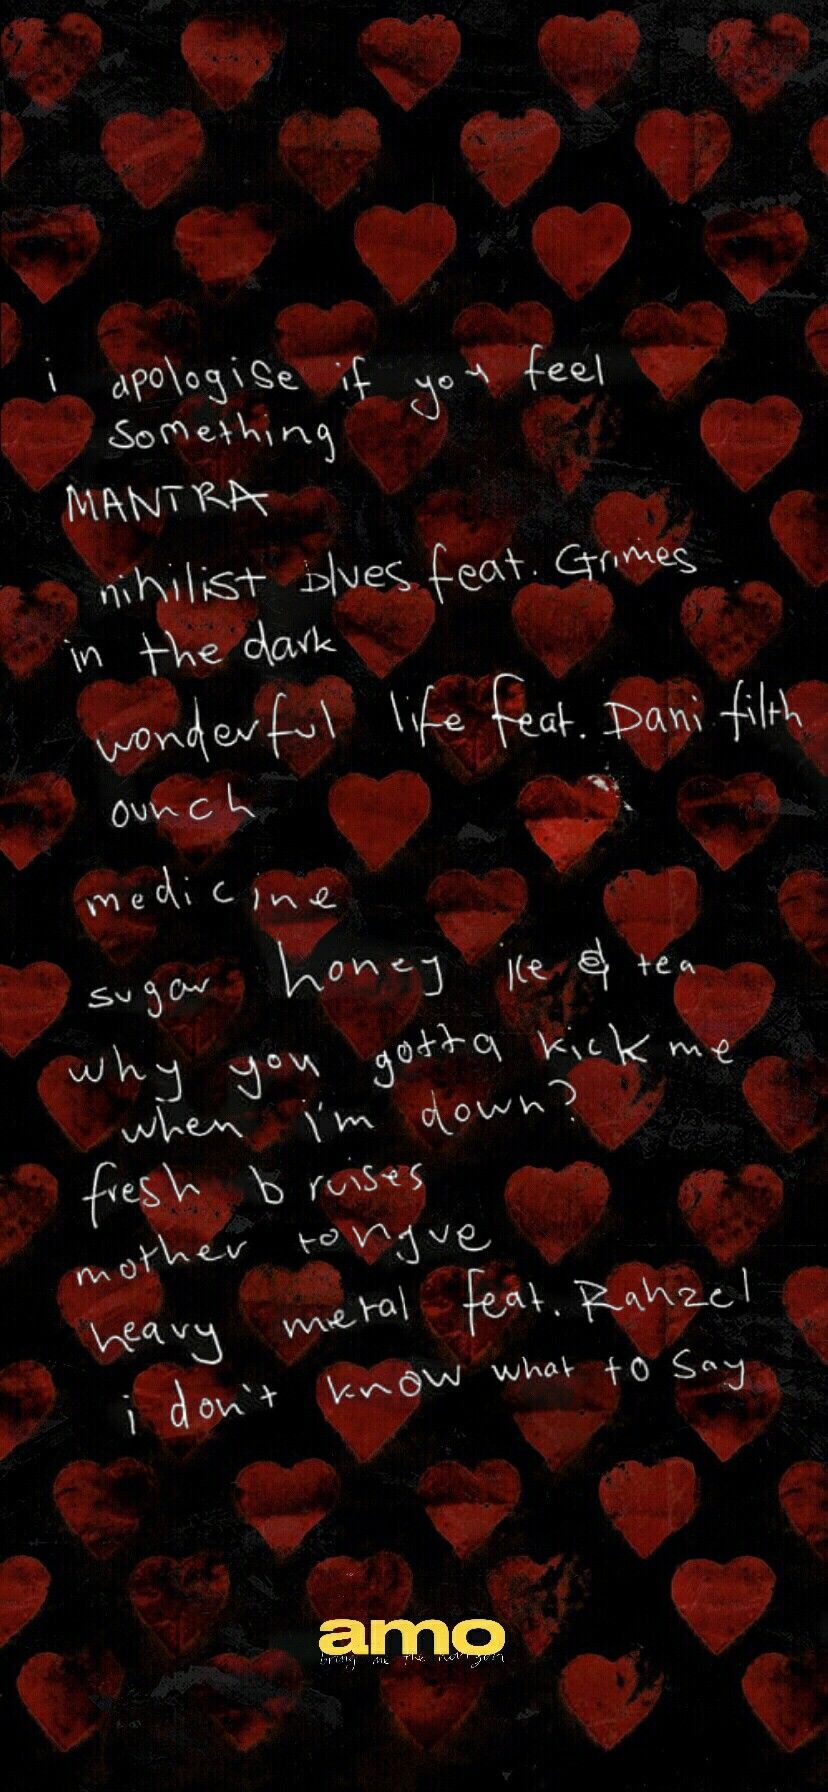 i apologise if you feel
something
MANTRA
nihilist blues feat. Grimes
in the dark
wonderful life feat. Dani filth
ounch
medicine
sugar honey ice & tea
why you gotta kick me
when i'm down?
fresh bruises
mother tongue
heavy metal feat. Rahzel
i don't know what to say
amo
bring me the horizon